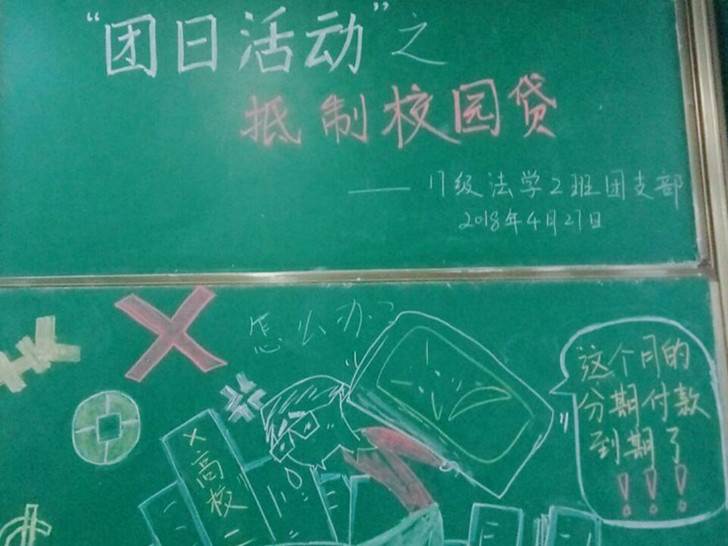 “团日活动”之
抵制校园贷
——17级法学2班团支部
2018年4月27日
怎么办？
这个月的
分期付款
到期了
！！！
×高校